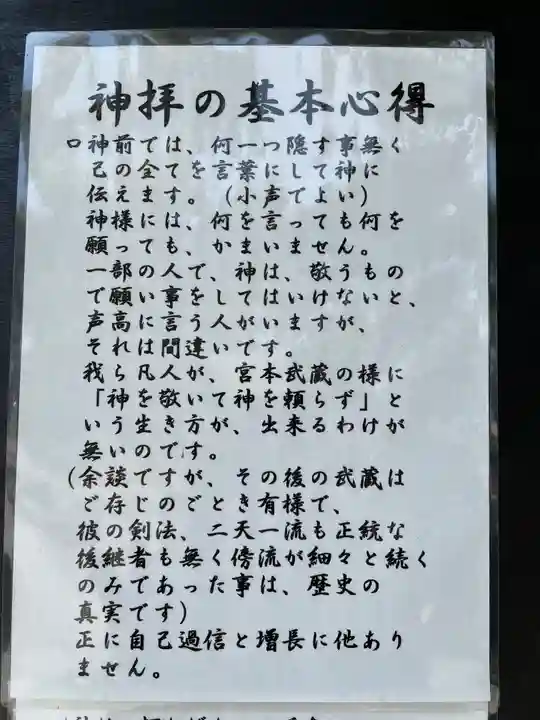 神拝の基本心得
ロ神前では、何一つ隠す事無く
己の全てを言葉にして神に
伝えます。（小声でよい）
神様には、何を言っても何を
願っても、かまいません。
一部の人で、神は、敬うもの
で願い事をしてはいけないと、
声高に言う人がいますが、
それは間違いです。
我ら凡人が、宮本武蔵の様に
「神を敬いて神を頼らず」と
いう生き方が、出来るわけが
無いのです。
（余談ですが、その後の武蔵は
ご存じのごとき有様で、
彼の剣法、二天一流も正統な
後継者も無く傍流が細々と続く
のみであった事は、歴史の
真実です）
正に自己過信と増長に他あり
ません。